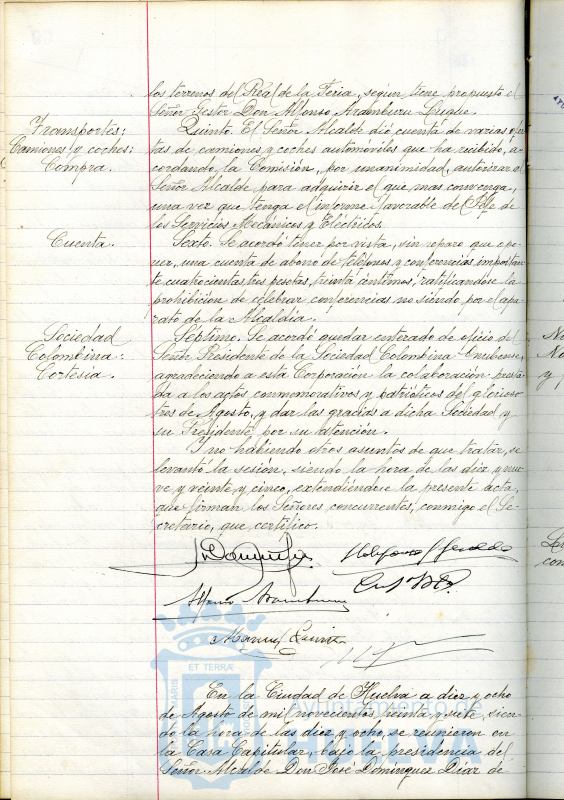 los terrenos del Real de la Feria, según tiene propuesto el
Señor Gestor Don Alfonso Aramburu Luque.
Transportes:
Camiones y coches:
Compra.
Quinto. El Señor Alcalde dió cuenta de varias ofer
tas de camiones y coches automóviles que ha recibido, a-
cordando la Comisión, por unanimidad, autorizar al
Señor Alcalde para adquirir el que mas convenga,
una vez que tenga el informe favorable del Jefe de
los Servicios Mecánicos y Eléctricos.
Cuenta.
Sexto. Se acordó tener por vista, sin reparo que opo-
ner, una cuenta de abono de teléfonos y conferencias, importan
te cuatrocientas tres pesetas, treinta céntimos, ratificándose la
prohibición de celebrar conferencias no siendo por el apa-
rato de la Alcaldía.
Sociedad
Colombina:
Cortesía.
Séptimo. Se acordó quedar enterado de oficio del
Señor Presidente de la Sociedad Colombina Onubense,
agradeciendo a esta Corporación la colaboración presta
da a los actos conmemorativos y patrióticos del glorioso
tres de Agosto, y dar las gracias a dicha Sociedad y
su Presidente por su atención.
Y no habiendo otros asuntos de que tratar, se
levantó la sesión, siendo la hora de las diez y nue-
ve y veinte y cinco, extendiéndose la presente acta,
que firman los Señores concurrentes, conmigo el Se-
cretario, que certifico.
Alfonso Aramburu
Manuel
ET TERRÆ
Ayuntamiento de
En la Ciudad de Huelva a diez y ocho
de Agosto de mil novecientos treinta y siete, sien-
do la hora de las diez y ocho, se reunieron en
la Casa Capitular, bajo la presidencia del
Señor Alcalde Don José Domínguez Díaz de